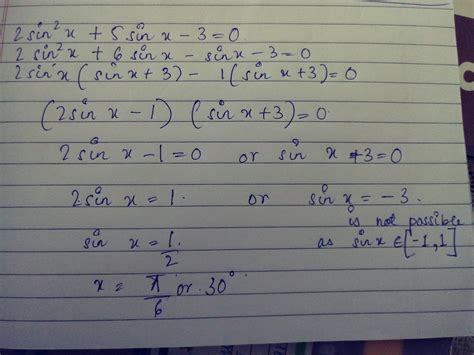 2 sin²x + 5 sin x - 3 = 0
2 sin²x + 6 sin x - sin x - 3 = 0
2 sin x (sin x + 3) - 1 (sin x + 3) = 0
(2 sin x - 1) (sin x + 3) = 0
2 sin x - 1 = 0 or sin x + 3 = 0
2 sin x = 1. or sin x = -3.
is not possible
sin x = 1/2 as sin x ∈ [-1, 1]
x = π/6 or 30°